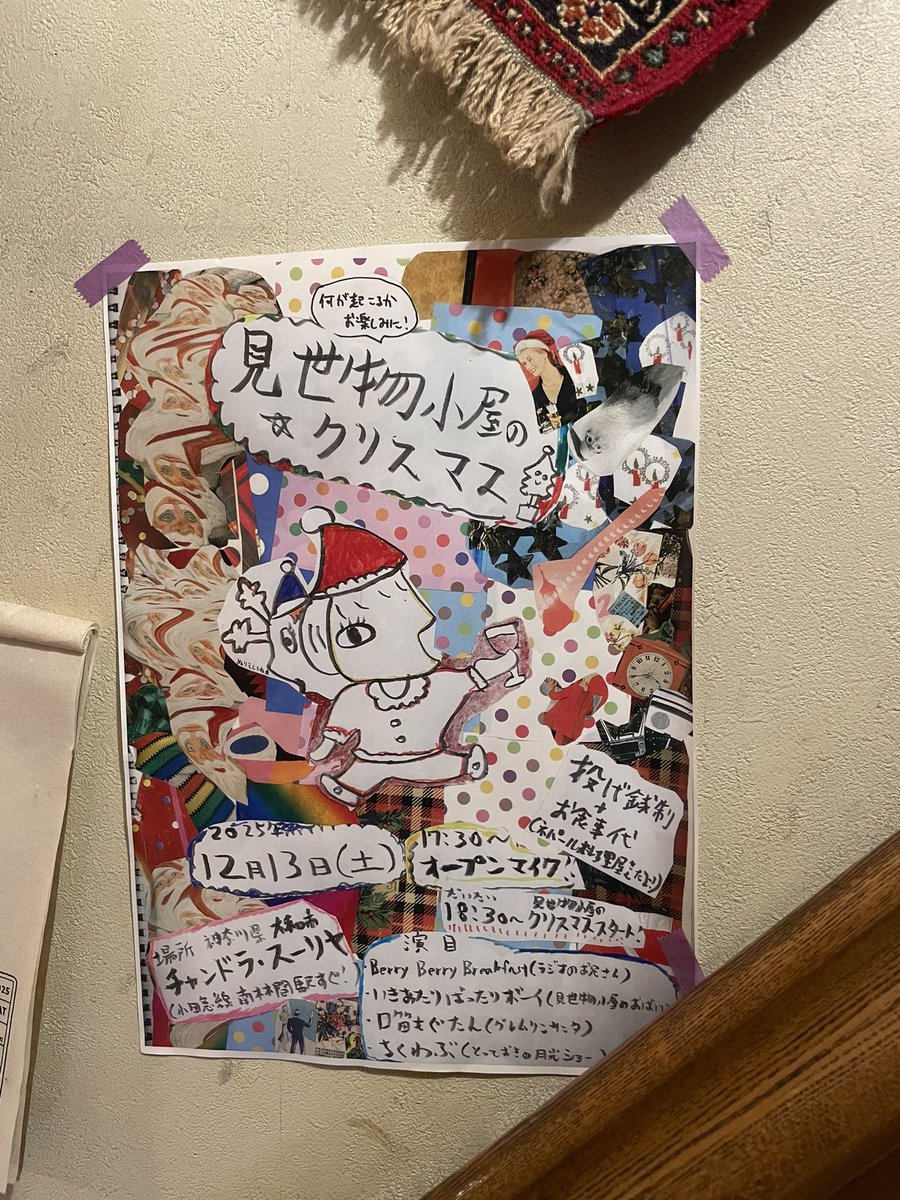 何が起こるか
お楽しみに!
見世物小屋の
☆クリスマス
2025年
12月13日(土)
17:30〜
オープンマイク!
だいたい
18:30〜
見世物小屋の
クリスマススタート!
投げ銭制
+
お食事代
(ネパール料理屋さんだより)
場所 神奈川県 大和市
チャンドラ・スーリヤ
(小田急線 南林間駅すぐ!
演目
・Berry Berry Breakfast(ラジオのお兄さん)
・いきあたりばったりボーイ(見世物小屋のおばけ)
・口笛士ぐたん(グレムリンサンタ)
・ちくわぶ(とっておきの月光ショー)